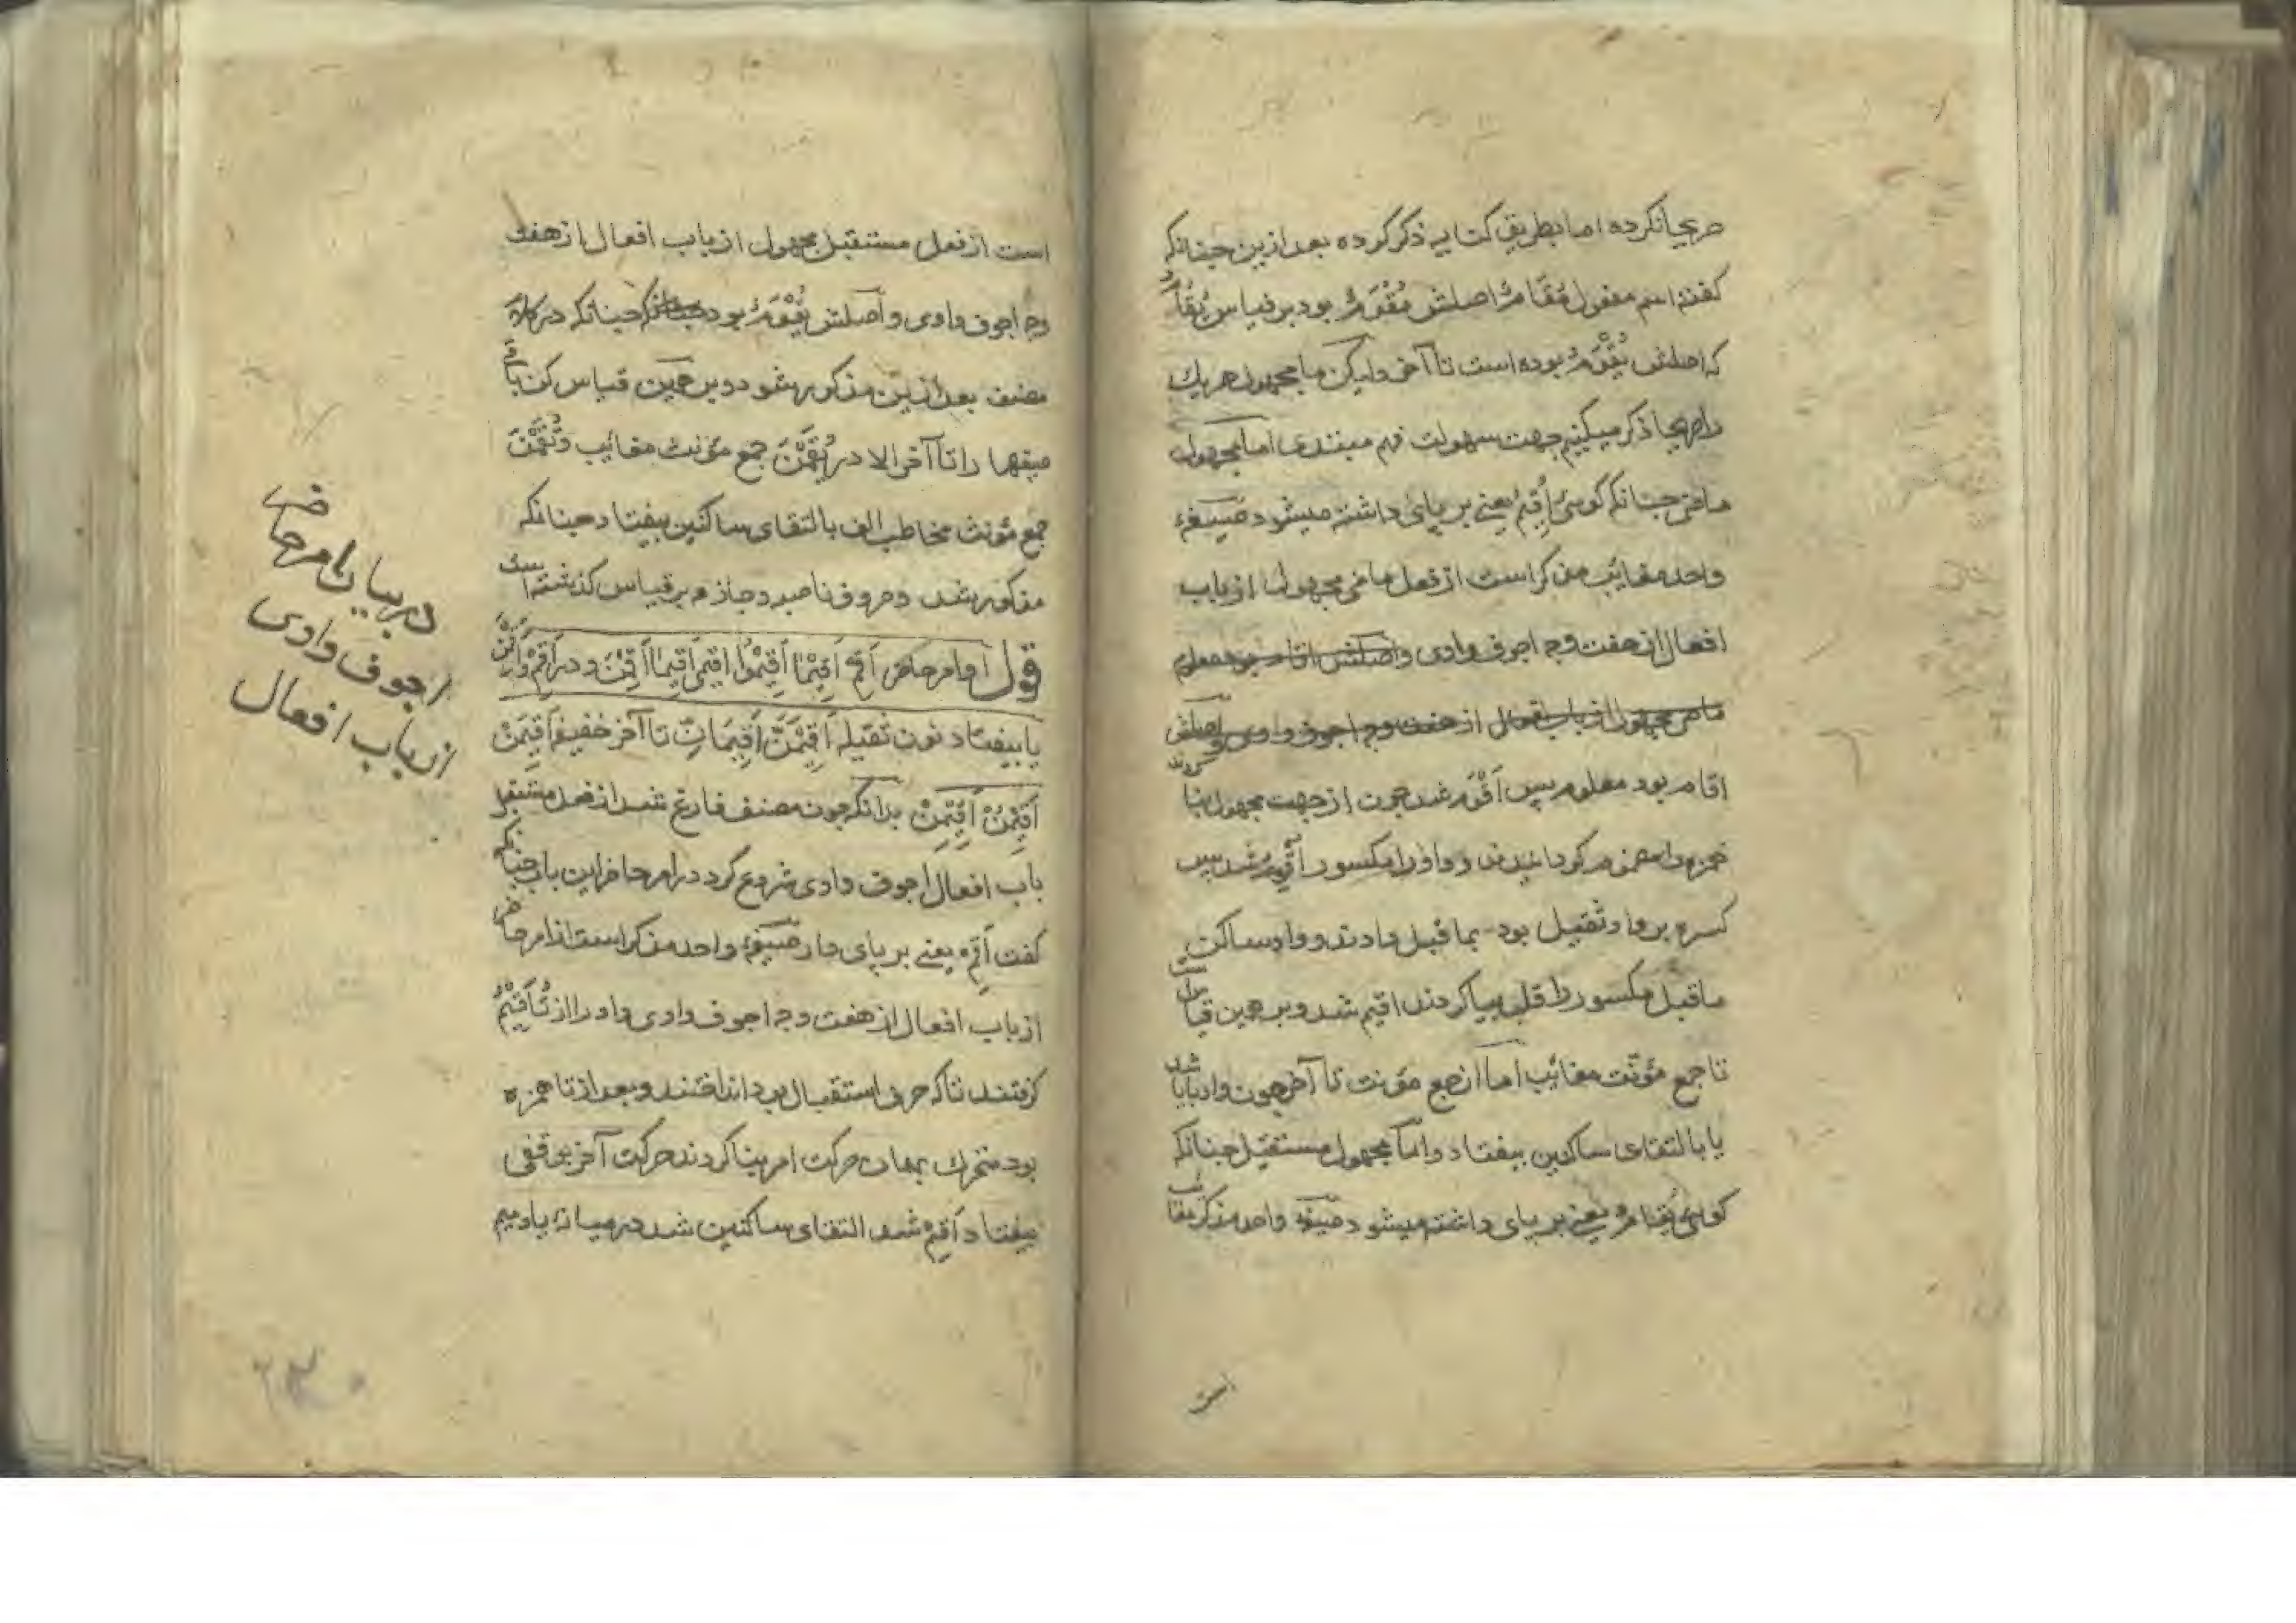 صریحا نکرده اما بطریق کنایه ذکر کرده بعد ازین چنانکه
کفته اسم مفعول مُقَامٌ اصلش مُقْوَمٌ بود بر قیاس یُقَامُ
که اصلش یُقْوَمُ بوده است تا آخر ولیکن ما مجهول هر یك
را صریحا ذکر میکنیم جهت سهولت فهم مبتدی اما مجهول
ماضی چنانکه کوئی اُقِیمَ یعنی بر پای داشته میشود صیغهٔ
واحد مغائب مذکر است از فعل ماضی مجهول از باب
افعال از هفت وجه اجوف وادی واصلش اقام بود معلوم
ماضی مجهول از باب افعال از هفت وجه اجوف وادی واصلش
اقام بود معلوم پس اَقْوَمَ شد چون از جهت مجهول بنا کردند
همزه را مضموم کردانیدند و واو را مکسور اُقْوِمَ شد پس
کسره بر واو ثقیل بود بما قبل دادند و واو ساکن
ماقبل مکسور را قلب بیا کردند اقیم شد وبر همین قیاس است
تا جمع مؤنّث مغائب اما از جمع مؤنث تا آخر چون واو یا شد
یا بالتقای ساکنین بیفتاد واما مجهول مستقبل چنانکه
کوئی یُقَامُ یعنی بر پای داشته میشود صیغه واحد مذکر مغائب
است از فعل مستقبل مجهول از باب افعال از هفت
وجه اجوف وادی واصلش یُقْوَمُ بود چنانکه در کلام
مصنف بعد ازین مذکور شود وبرین قیاس کن باقی
صیغها را تا آخر الا در یُقَمْنَ جمع مؤنث مغائب وتُقَمْنَ
جمع مؤنث مخاطب الف بالتقای ساکنین بیفتاد چنانکه
مذکور شد وحروف ناصبه وجازمه بر قیاس کذشته است
قول امر حاضر اَقِمْ اَقِیْمَا اَقِیْمُوا اَقِیمِی اَقِیمَا اَقِمْنَ ودر اَقِمْ واَقِمْنَ
یا بیفتاد نون ثقیله اَقِیْمَنَّ اَقِیْمَانِّ تا آخر خفیفه اَقِیْمَنْ
اَقِیْمُنْ اَقِیْمِنْ بدانکه چون مصنف فارغ شد از فعل مستقبل
باب افعال اجوف وادی شروع کرد در امر حاضر این باب چنانکه
کفت اَقِمْ یعنی بر پای دار صیغهٔ واحد مذکر است از امر حاضر
از باب افعال از هفت وجه اجوف وادی واو را از تُأَقْیِمُ
کرفتند تا که حرف استقبال بود انداختند وبعد از تا همزه
بود متحرك بهمان حرکت امر بنا کردند حرکت آخر بوقفی
بیفتاد اَقِیْمْ شد التقای ساکنین شد در میانه یا ومیم
در بیان امر حاضر
اجوف وادی
از باب افعال
است
۲۳۰